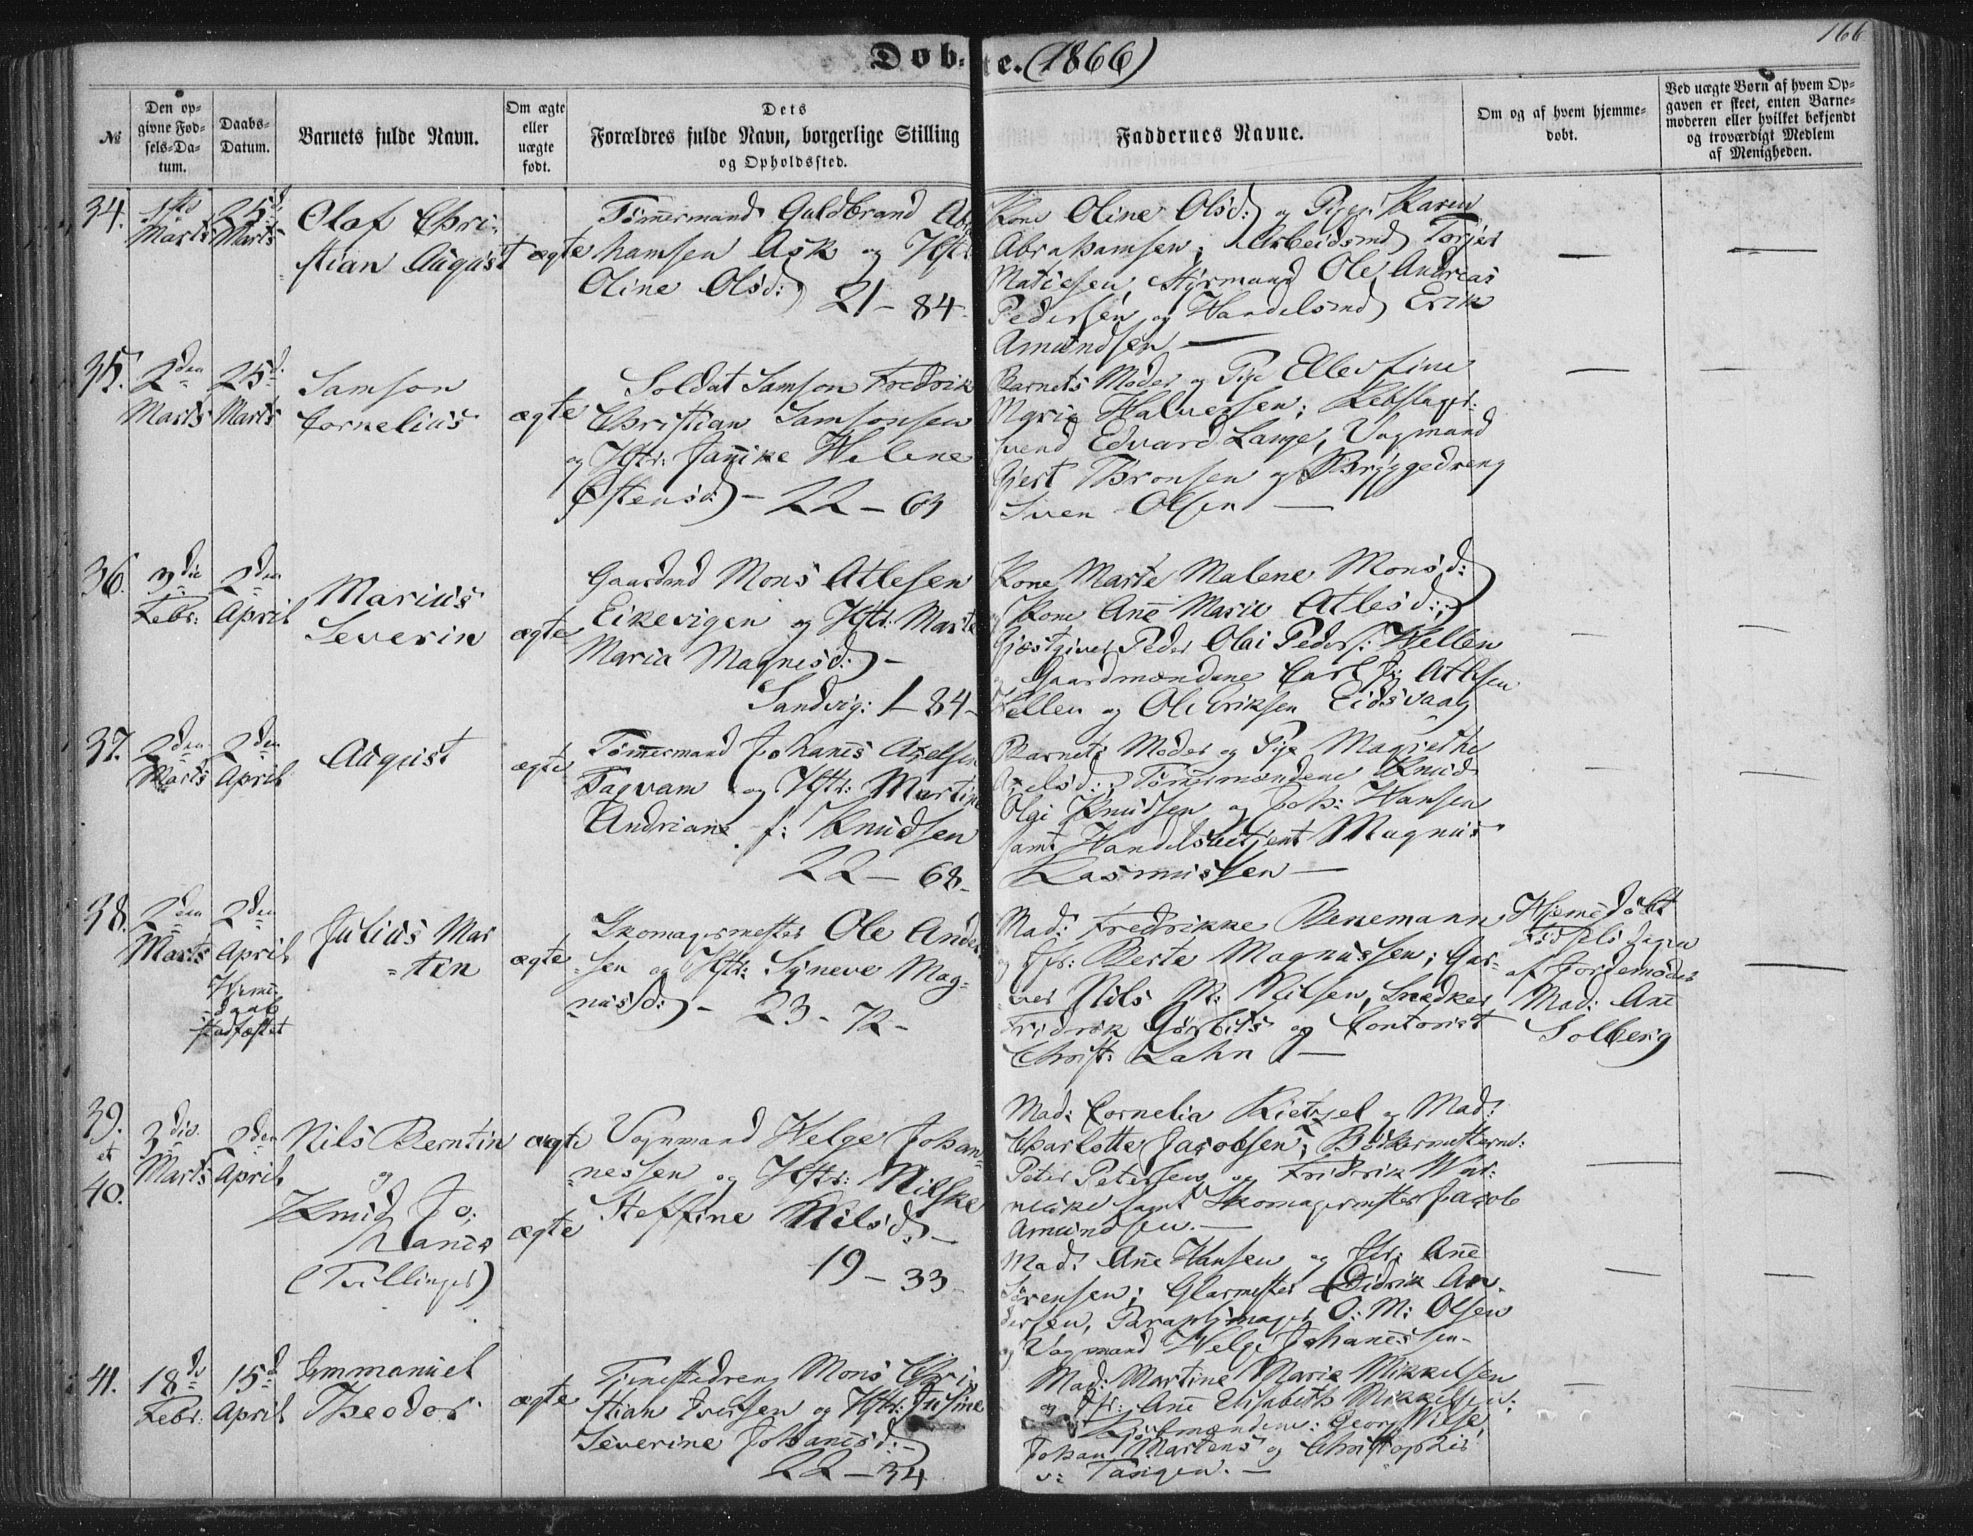 166
Døbte. (1866)
№
Den opgivne Fødsels-Datum.
Daabs-Datum.
Barnets fulde Navn.
Om ægte eller uægte født.
Dets
Forældres fulde Navn, borgerlige Stilling
og Opholdssted.
Faddernes Navne.
Om og af hvem hjemmedøbt.
Ved uægte Børn af hvem Opgaven er skeet, enten Barnemoderen eller hvilket bekjendt og troværdigt Medlem af Menigheden.
34.
1ste Marts
25d. Marts
Olaf Chri-
stian August
ægte
Tømmermand Guldbrand Abra
hamsen Ask og Hstr
Oline Olsd:
21 – 84 –
Kone Oline Olsd: og Pige Karen
Abrahamsen; Arbeidsmd Torjer
Matiesen, Styrmand Ole Andreas
Pedersen og Handelsmd Erik
Amundsen —
—
—
35.
2den Marts
25d. Marts
Samson
Cornelius
ægte
Soldat Samson Fredrik
Christian Samsonsen
og Hstr: Janike Helene
Østensd: –
22 – 63
Barnets Moder og Pige Elle Stine
Marie Halvorsen; Rebslager
Svend Edvard Lange, Vogmand
Gjert Thronsen og Bryggedreng
Sven Olsen —
—
—
36.
3die Febr:
2den April
Marius
Severin
ægte
Gaardmd Mons Atlesen
Eikevigen og Hstr: Marte
Maria Magnesd: –
Sandvig: 1 – 84 –
Kone Marte Malene Monsd:
og Kone Ane Marie Atlesd:;
Gjæstgiver Peder Olai Peders: Hellen
og Gaardmændene Carl J: Atlesen
Hellen og Ole Eriksen Eidsvaag
—
—
37.
2den Marts
2den April
August
ægte
Tømmermand Johanes Axelsen
Fagvam og Hstr: Martine
Andriane f: Knudsen
22 – 68 –
Barnets Moder og Pige Magrethe
Axelsd:; Tømmermændene Knud
Olai Knudsen og Joh: Hansen
samt Handelsbetjent Magnus
Rasmussen —
—
—
38.
2den Marts
2den April
Hjeme-
daab
stadfæstet
Julius Mar
tin
ægte
Skomagermester Ole Ander
sen og Hstr: Synneve Mag-
nusd: –
23 – 72 –
Mad: Fredrikke Benemann
og Jfr: Berte Magnussen; Gar-
ver Nils M: Nilsen, Snedker
Fridrik Gørbits og Contorist
Christ: Lahn —
Hjemedøbt
Fødselsdagen
af Jordemoder
Mad: Ane
Solberg
—
39.
et
40.
3die Marts
2den April
Nils Berntin
og
Knud Jo-
hanes
(Tvillinger)
ægte
ægte
Vognmand Helge Johan-
nessen og Hstr: Nilske
Steffine Nilsd: –
19 – 33 –
Mad: Cornelia Rietzel og Mad:
Charlotte Jacobsen; Bødkermestern:
Peter Petersen og Fridrik War-
necke samt Skomagermester Jacob
Amundsen. —
Mad: Ane Hansen og Jfr: Ane
Sørensen; Glarmester Didrik An-
dersen, Paraplymager O: M: Olsen
og Vogmand Helge Johanessen –
—
—
—
—
41.
18de Febr:
15d April
Emmanuel
Theodor
ægte
Tjenestedreng Mons Chri
stian Iversen og Hstr: Justine
Severine Johanesd: –
22 – 34
Mad: Martine Marie Mikkelsen
og Jfr: Ane Elisabeth Mikkelsen;
Kjøbmændene: Georg Wiese,
Johan Martens og Christopher
v: Tangen. —
—
—